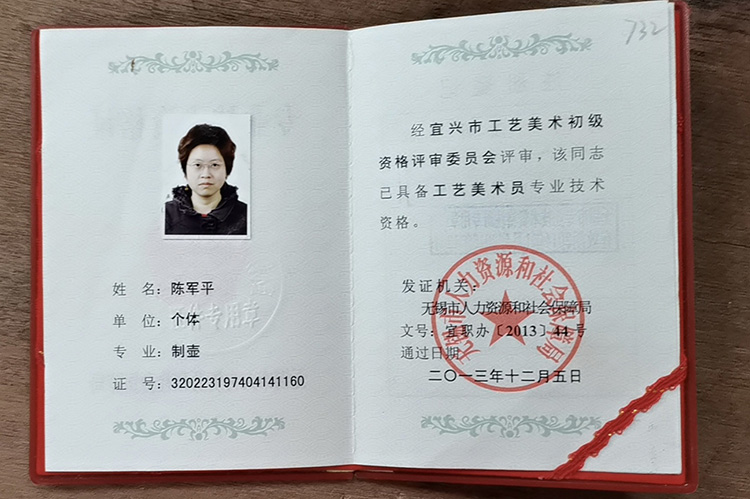 姓 名：陈军平
单 位：个体
专 业：制壶
证 号：320223197404141160
专用章
732
经宜兴市工艺美术初级
资格评审委员会评审，该同志
已具备工艺美术员专业技术
资格。
发证机关：
无锡市人力资源和社会保障局
文号：宜职办〔2013〕44号
通过日期
二〇一三年十二月五日
无锡市人力资源和社会保障局